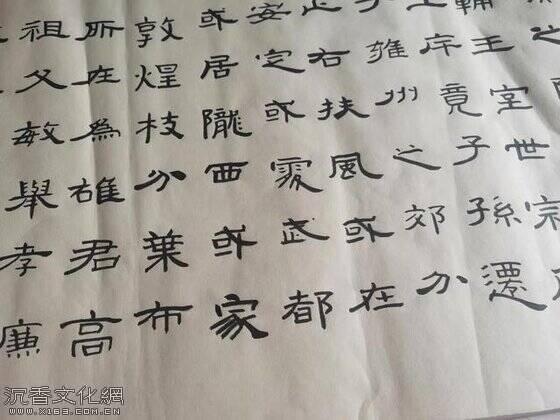 之
輔王室世宗
土斥竟子孫遷
于雍州之郊分
止右扶風或在
安定或處武都
或居隴西或家
敦煌枝分葉布
所在為雄君高
祖父敏舉孝廉
沉香文化網
www.x1686.com.cn